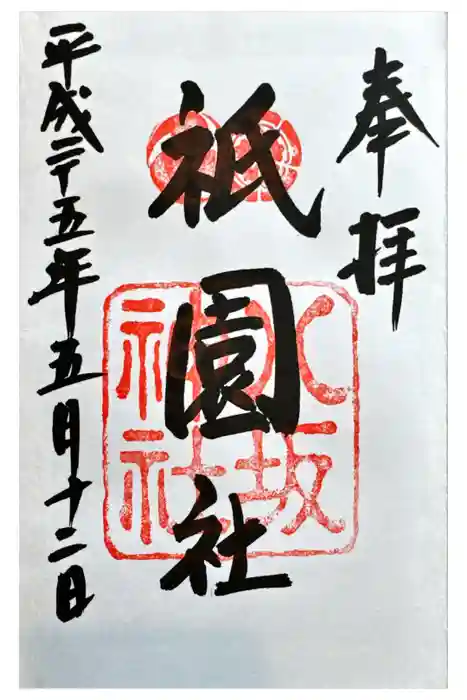 奉拝
祇園社
八坂
神社
平成二十五年五月十二日